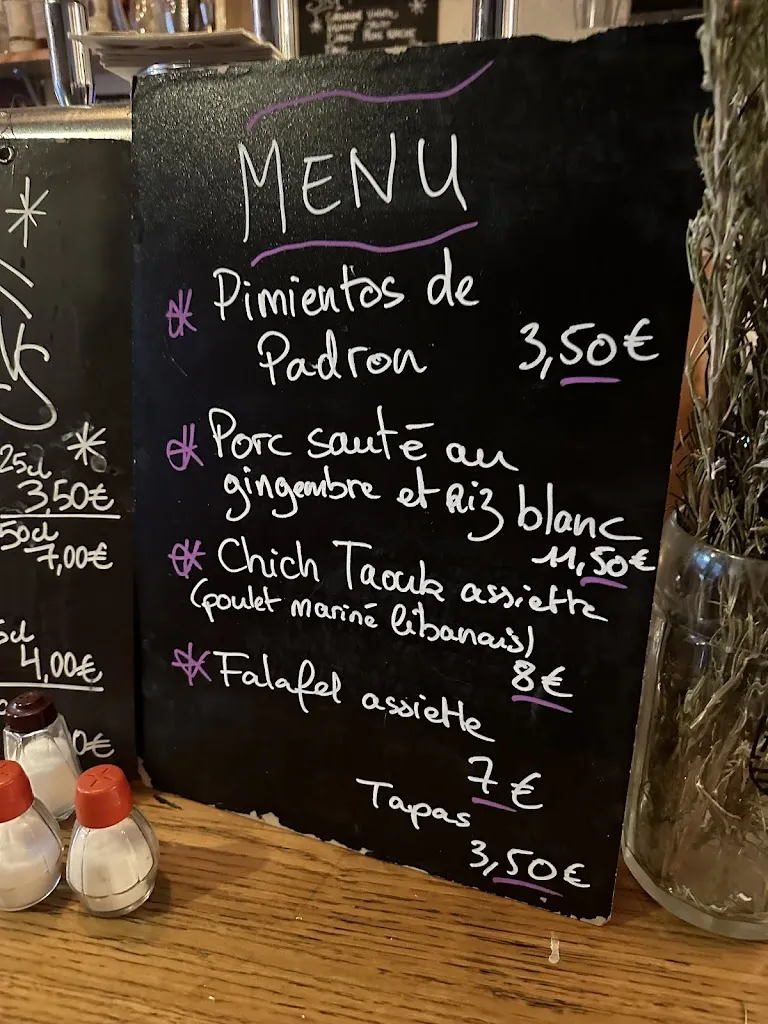 MENU
Pimientos de
Padron 3,50€
Porc sauté au
gingembre et Riz blanc
11,50€
Chich Taouk assiette
(poulet mariné libanais)
8€
Falafel assiette
7€
Tapas
3,50€
25cl
3,50€
50cl
7,00€
4,00€